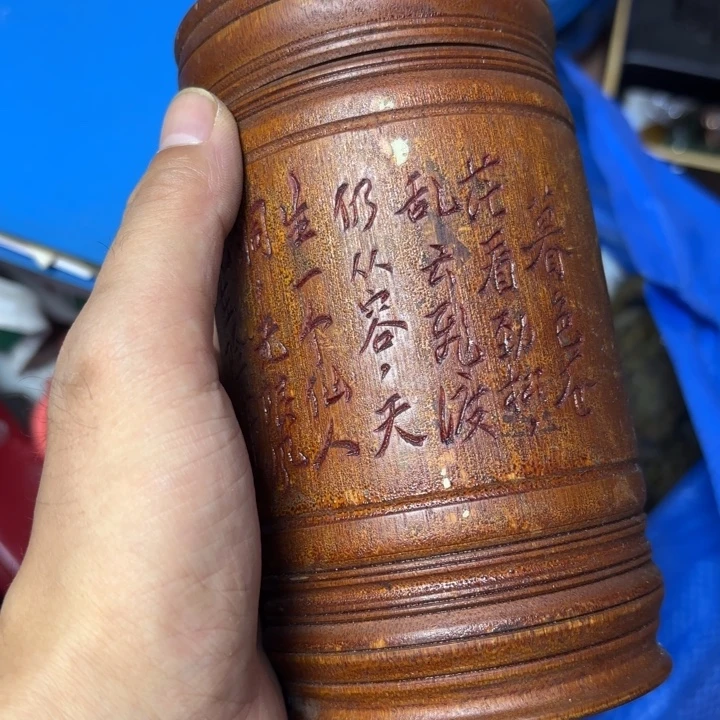 暮色苍
茫看劲松
乱云飞渡
仍从容，天
生一个仙人
洞，无限风